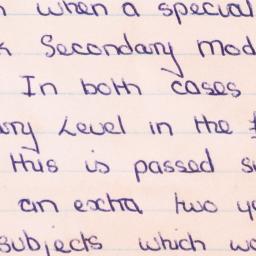 when a special
Secondary Mod
In both cases
Level in the
this is passed
an extra two
subjects which